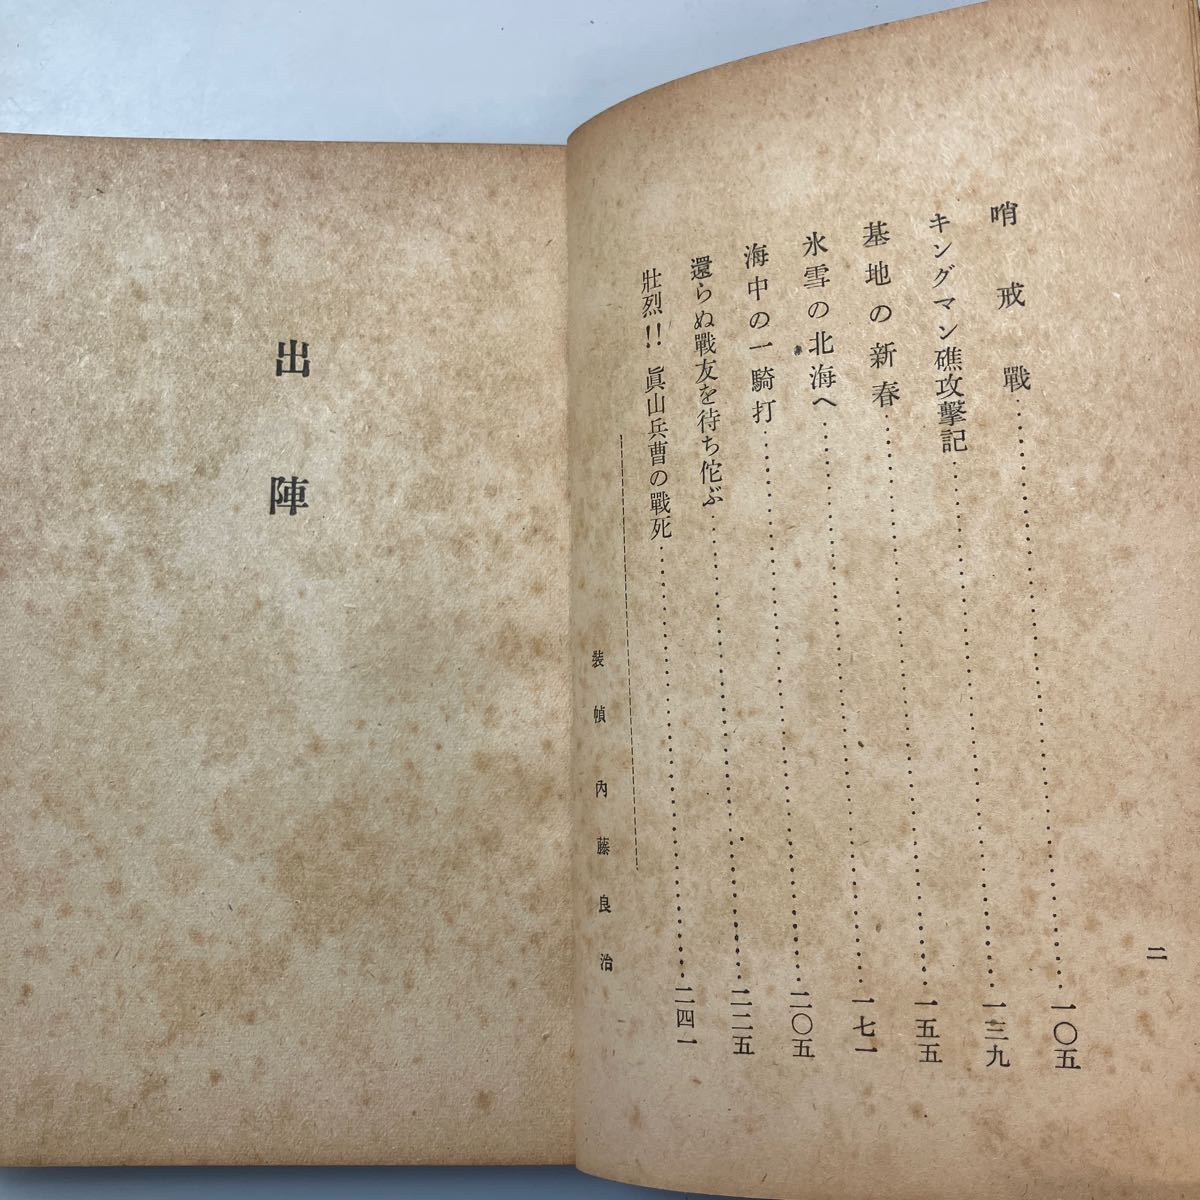 二
哨戒戰……………一〇五
キングマン礁攻擊記……………一三九
基地の新春……………一五五
氷雪の北海へ……………一七一
海中の一騎打……………二〇五
還らぬ戰友を待ち佗ぶ……………二二五
壯烈!! 眞山兵曹の戰死……………二四一
裝幀 內藤良治
出陣